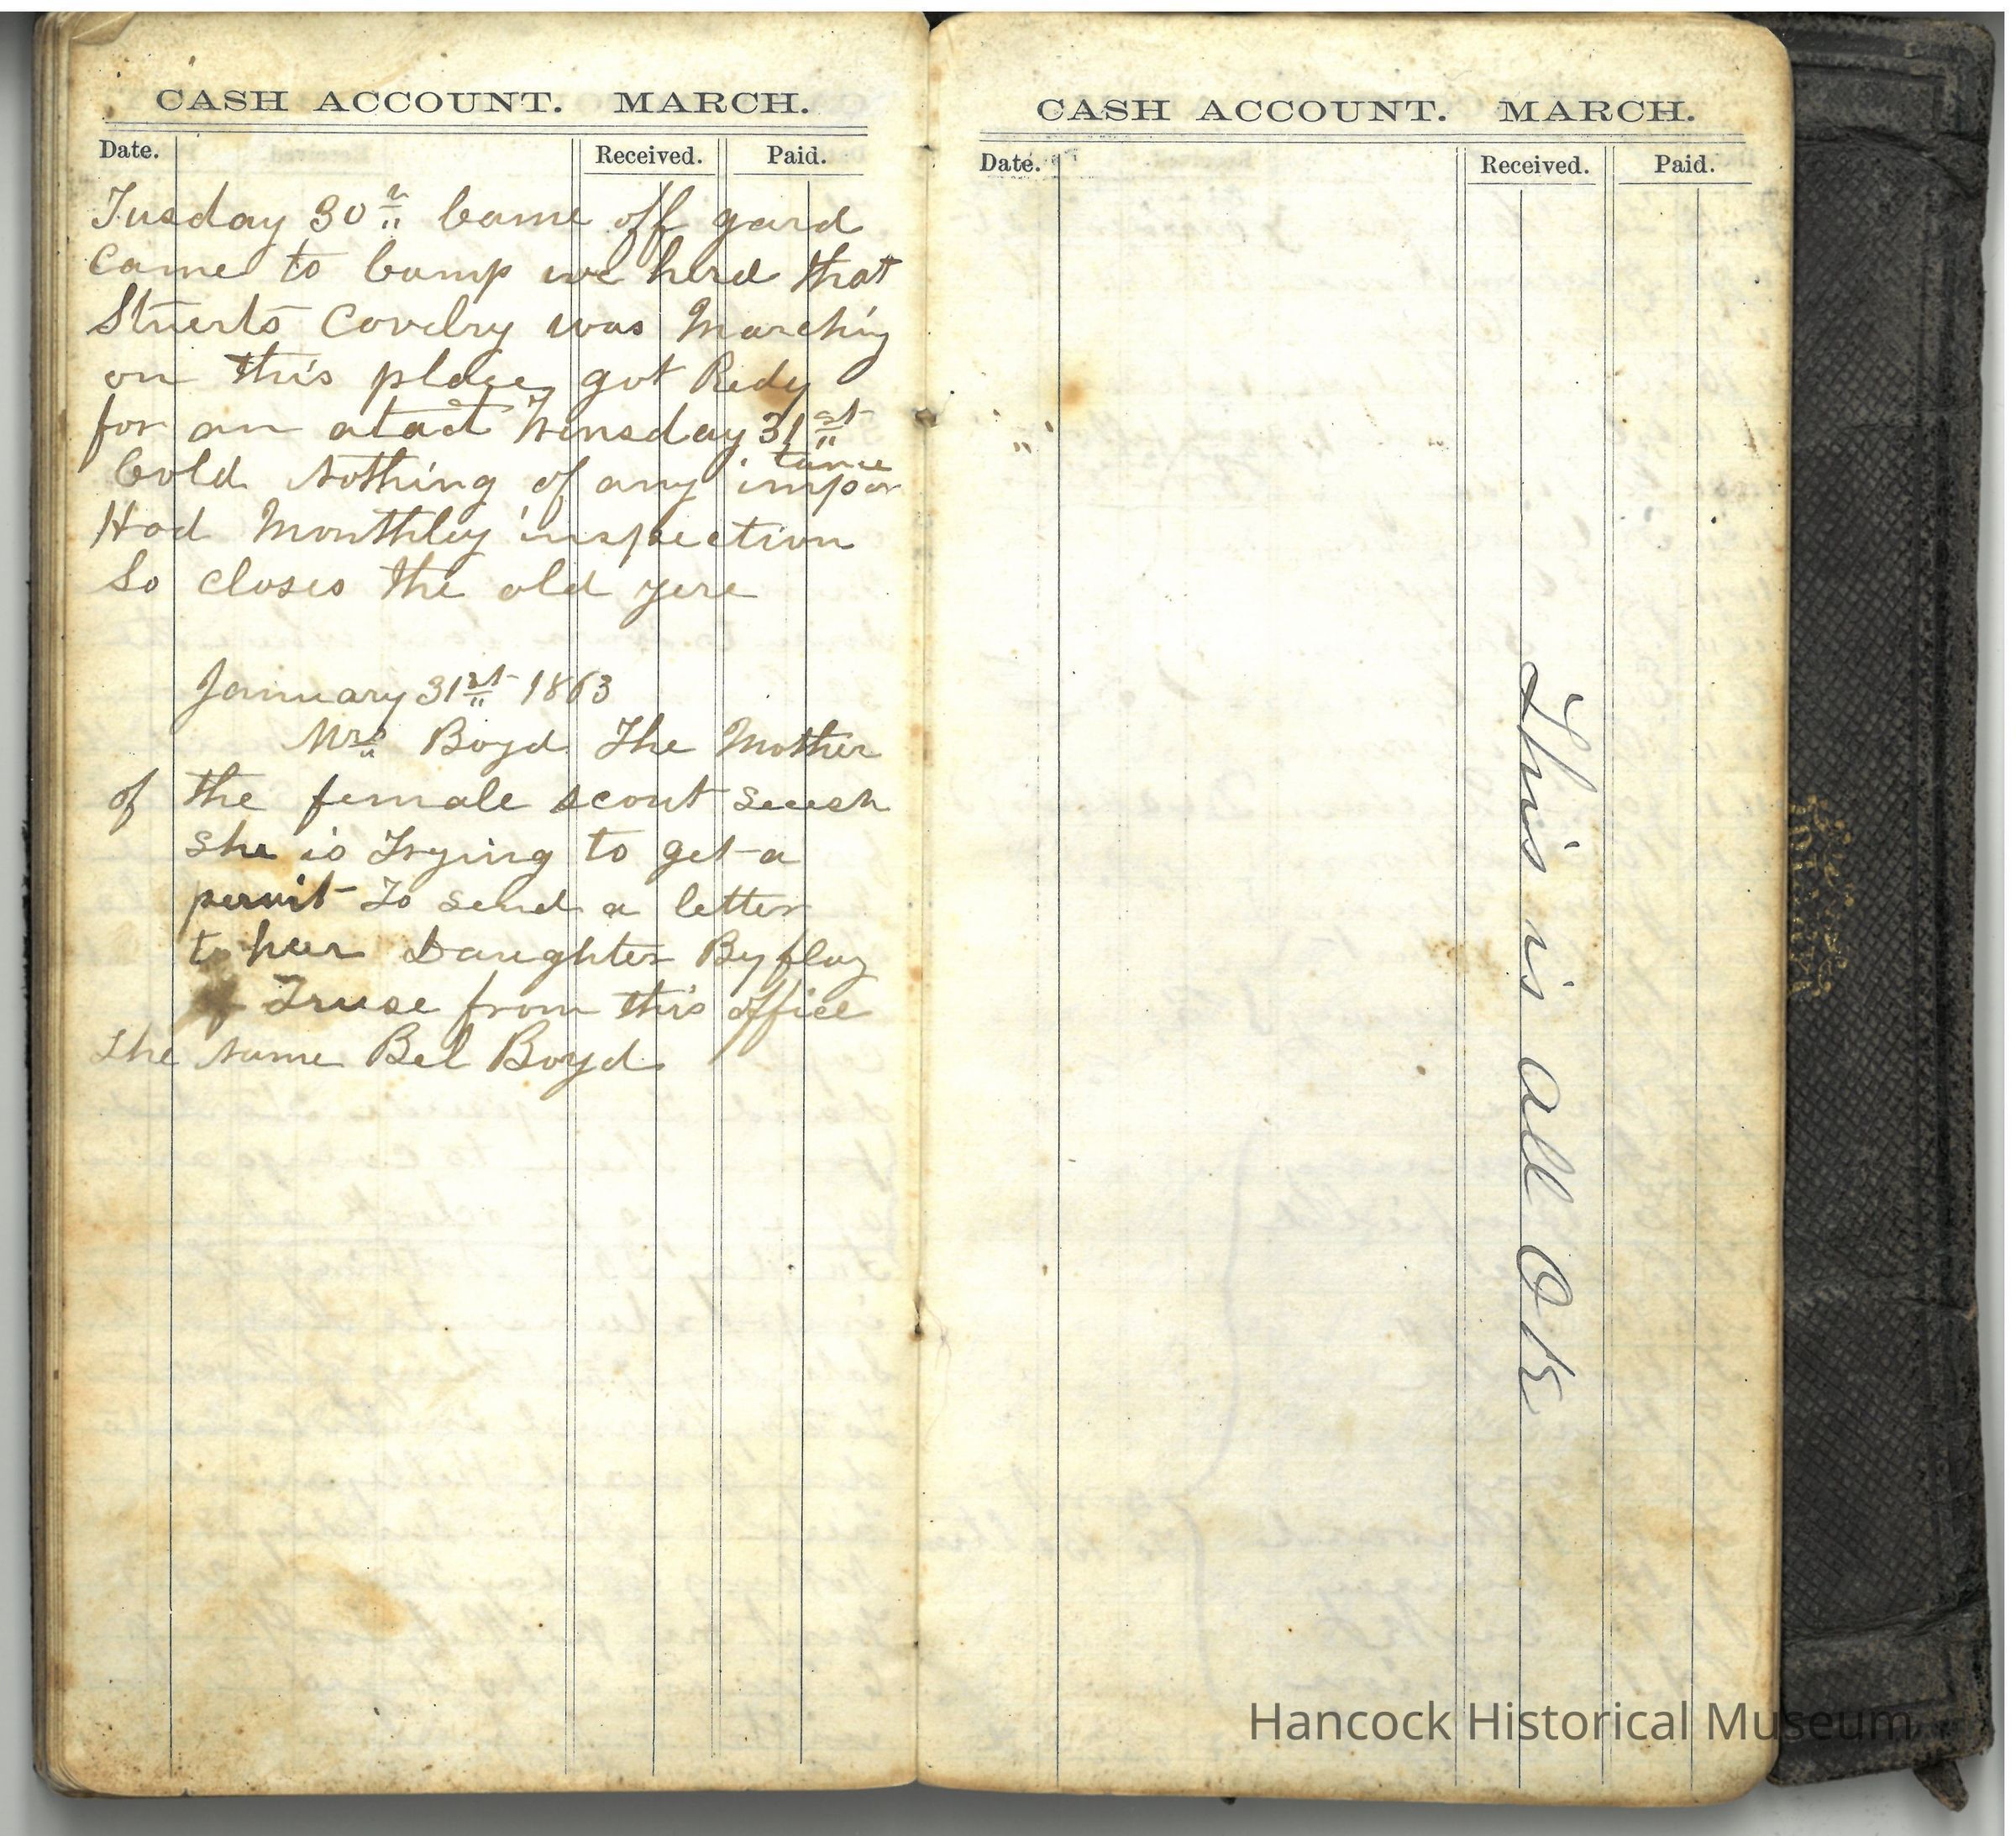 CASH ACCOUNT. MARCH.
Date. Received. Paid.
Tusday 30th Came off gard
came to Camp we herd that
Stuerts Cavelry was Marching
on this place got Redy
for an atact Wensday 31st
Cold Nothing of any importance
Had Monthley inspection
So closes the old yere
January 31st 1863
Mrs Boyd The Mother
of the female scout seesh
she is Trying to get a
permit To send a letter
to her Daughter By flag
of Truse from this office
the name Bel Boyd
CASH ACCOUNT. MARCH.
Date. Received. Paid.
This is all OK
Hancock Historical Museum